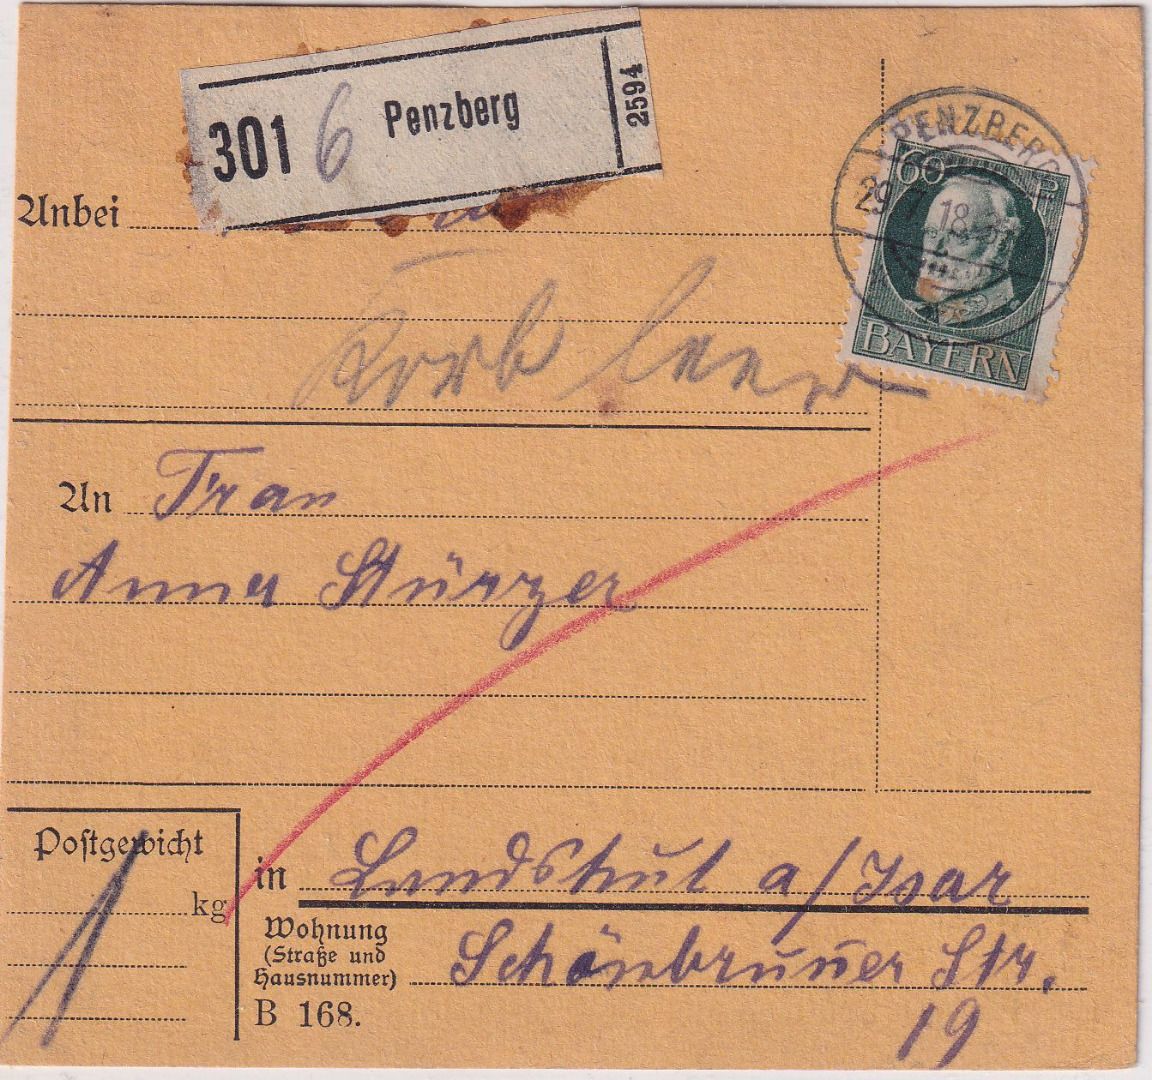 301 6 Penzberg 2594
PENZBERG
60 P
BAYERN
Anbei
Korb leer
An Frau
Anna Stürzer
Postgewicht
kg
1
in Landshut a/Isar
Wohnung
(Straße und
Hausnummer)
Schönbrunner Str.
19
B 168.